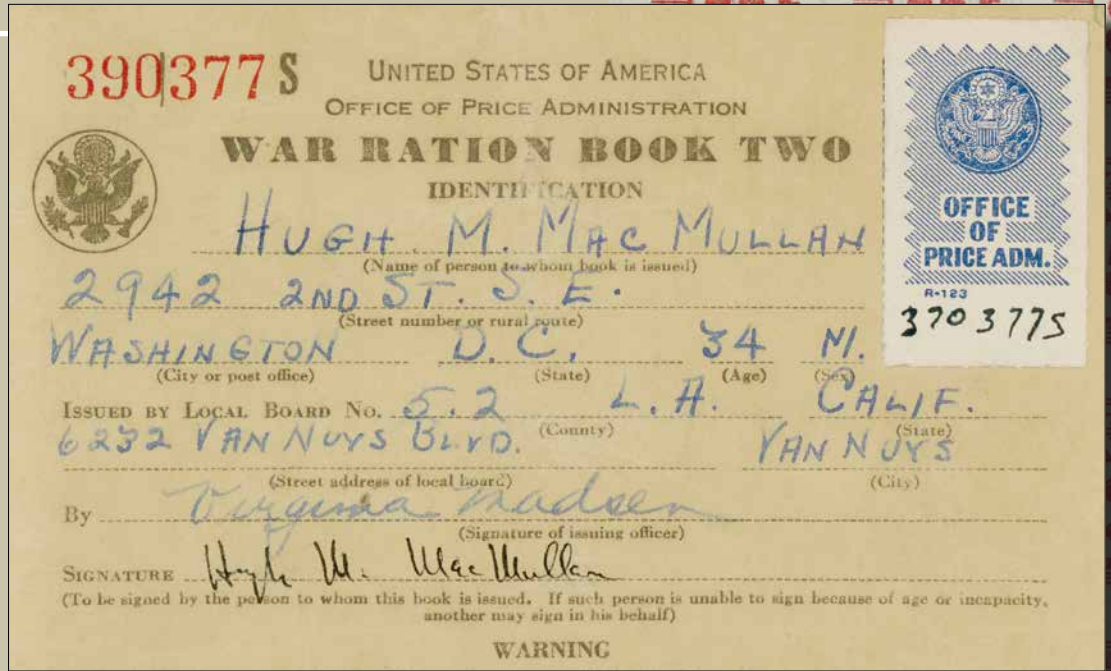 390377 S
UNITED STATES OF AMERICA
OFFICE OF PRICE ADMINISTRATION
WAR RATION BOOK TWO
IDENTIFICATION
OFFICE
OF
PRICE ADM.
R-123
3703775
HUGH M. MACMULLAN
(Name of person to whom book is issued)
2942 2ND ST. S.E.
(Street number or rural route)
WASHINGTON D.C. 34 M.
(City or post office) (State) (Age) (Sex)
ISSUED BY LOCAL BOARD NO. 5.2 L.A. CALIF.
(County) (State)
6232 VAN NUYS BLVD. VAN NUYS
(Street address of local board) (City)
By Virginia Madsen
(Signature of issuing officer)
SIGNATURE Hugh M. MacMullan
(To be signed by the person to whom this book is issued. If such person is unable to sign because of age or incapacity,
another may sign in his behalf)
WARNING